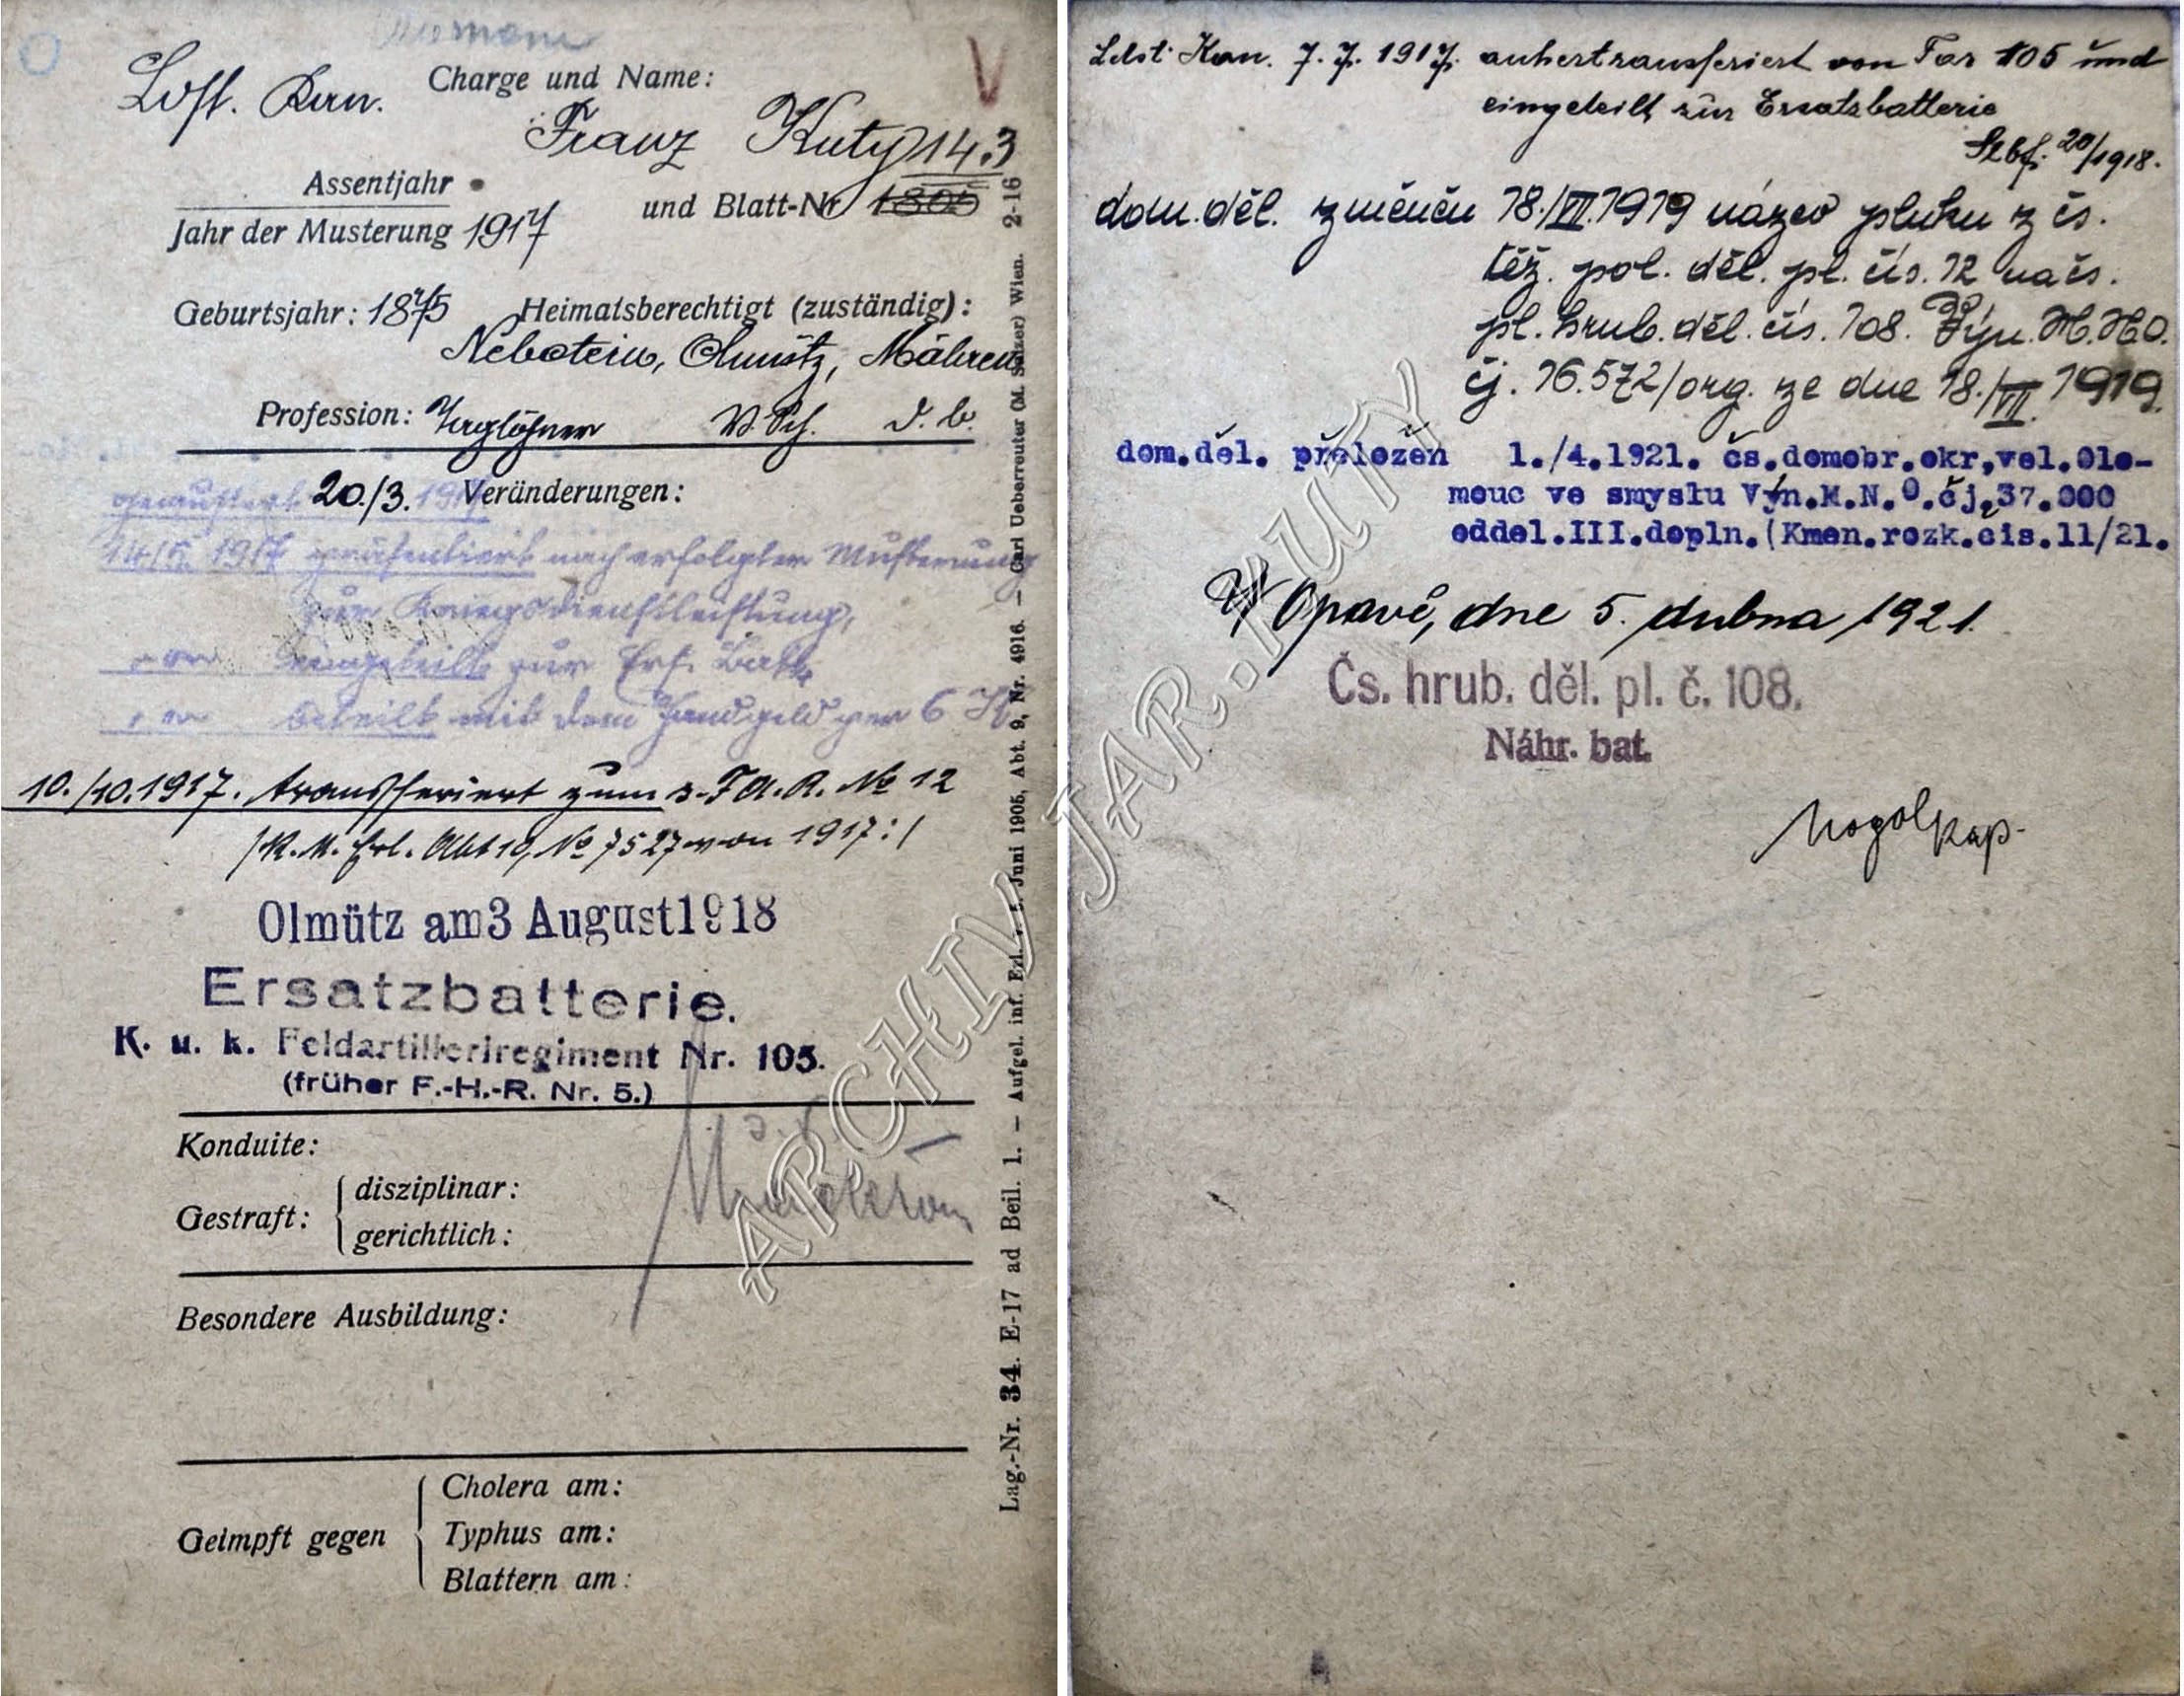 Ldst. Kan. Charge und Name:
Franz Kuty 143
Assentjahr
Jahr der Musterung 1917 und Blatt-Nr. 1805
Geburtsjahr: 1875 Heimatsberechtigt (zuständig):
Nebotein, Olmütz, Mähren
Profession: Taglöhner W. Sch. d. b.
gemustert 20./3. 1917 Veränderungen:
14/5. 1917 präsentiert nach erfolgter Musterung
zur Kriegsdienstleistung,
eingeteilt zur Ers. Batt.
beteilt mit dem Handgeld per 6 K
10./10.1917. transferiert zum s. F.A.R. No 12
/K. M. Erl. Abt 10, No 7527 von 1917:/
Olmütz am 3 August 1918
Ersatzbatterie.
K. u. k. Feldartillerieregiment Nr. 105.
(früher F.-H.-R. Nr. 5.)
Konduite:
Gestraft: disziplinar:
gerichtlich:
Besondere Ausbildung:
Geimpft gegen
Cholera am:
Typhus am:
Blattern am:
Lag.-Nr. 34. E-17 ad Beil. 1. — Aufgel. inf. Erl. v. 5. Juni 1905, Abt. 9, Nr. 4916. — Carl Ueberreuter (M. Salzer) Wien. 2-16
Ldst Kan. 7. 7. 1917. anhertransferiert von Far 105 und
eingeteilt zur Ersatzbatterie
Stbf. 20/1918.
dom. děl. změněn 18./VII.1919 název pluku z čs.
těž. pol. děl. pl. čís. 12 na čs.
pl. hrub. děl. čís. 108. Výn. M.N.O.
čj. 16.572/org. ze dne 18./VII. 1919.
dom.děl. přeložen 1./4.1921. čs.domobr.okr,vel.Olo-
mouc ve smyslu Výn.M.N.O.čj,37.000
oddel.III.dopln.(Kmen.rozk.cis.11/21.
V Opavě, dne 5. dubna 1921.
Čs. hrub. děl. pl. č. 108.
Náhr. bat.
Nogol kap.
ARCHIV JAR. KUTY